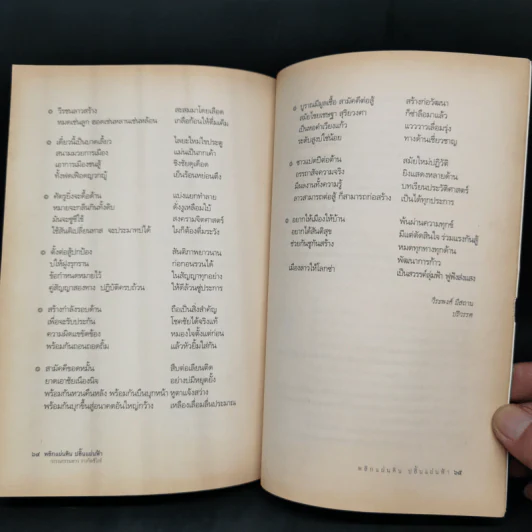 ๏ วีรชนลาวสร้าง สะสมมาโดยเลือด
หมดเช่นลูก ฮอดเช่นหลานเช่นเหลือน เกลือก้อนให้ดื่มเค็ม
๏ เดี๋ยวนี้เป็นบาดเลี้ยว ไลยะใหม่ไขประตู
สนามมวยการเมือง แม่นเป็นกกเค้า
เอาการเมืองชนสู้ ชิงชัยดุเดือด
ทั้งฟดเฟือดญวกญู้ เป็นร้อนหบ่อนตึง
๏ ศัตรูยังจะดื้อด้าน แบ่งแยกทำลาย
หมายจะกลืนกินทั้งดิบ ดั่งงูเหลือมไบ้
มันจะขู่ขี่ใช้ สงครามจิตศาสตร์
ใช้สันติเปลี่ยนสกล จะประมาทบ่ได้ ไผก็ต้องที่ระวัง
๏ ตั้งต่อสู้ปกป้อง สันติภาพยาวนาน
บ่ให้ฝูงรุกราน ก่อกอนรวนได้
ข้อกำหนดหมายไว้ ในสัญญาทุกอย่าง
คู่สัญญาสองทาง ปฏิบัติครบถ้วน ให้ดีล้วนสู่ประการ
๏ สร้างกำลังรอบด้าน ถือเป็นสิ่งสำคัญ
เพื่อจะรับประกัน โชคชัยได้จริงแท้
ความผิดแยขัดข้อง หมองใจตั้งแต่ก่อน
พร้อมกันถอนถอดยิ้ม แล้วหัวยิ้มใส่กัน
๏ สามัคคีขอดหมั้น สืบต่อเลียนติด
ยาดเอาชัยเนืองนิจ อย่างบ่มีหยุดยั้ง
พร้อมกันหวนคืนหลัง พร้อมกันบืนบุกหน้า หูตาแจ้งสว่าง
พร้อมกันบุกขึ้นสู่อนาคตอันใหญ่กว้าง เหลืองเลื่อมลื่นประมาณ
๖๔ พลิกแผ่นดิน ปลิ้นแผ่นฟ้า
๏ บูรานมีมูลเชื้อ สามัคคีต่อสู้ สร้างก่อวัฒนา
สมัยไชยเชษฐา สุริยวงศา ก็ซ่าลือมาแล้ว
เป็นหอคำเวียงแก้ว แววววาวเลื่อมรุ่ง
ระดับสูงบ่ใช่น้อย ทางด้านเชี่ยวชาญ
๏ ชาวแปดปีต่อต้าน สมัยใหม่ปฏิวัติ
อรรถาสังความจริง ยิ่งแสดงหลายด้าน
มีผลงานทั้งความรู้ บทเรียนประวัติศาสตร์
ลาวสามารถต่อสู้ ก็สามารถก่อสร้าง เป็นได้ทุกประการ
๏ อยากให้เมืองให้บ้าน พ้นผ่านความทุกข์
อยากได้สันติสุข มีแต่ตัดสินใจ ร่วมแรงกันสู้
ช่วยกันชูกันสร้าง หมดทุกทางทุกด้าน
พัฒนาการก้าว
เมืองลาวให้โลกซ่า เป็นสวรรค์ลุ่มฟ้า ฟูฟื้งส่งแสง
วีระพงศ์ มีสถาน
ปริวรรต
พลิกแผ่นดิน ปลิ้นแผ่นฟ้า ๖๕